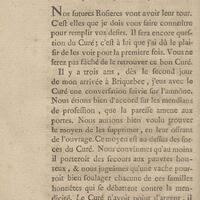 Nos futures Rosieres vont avoir leur tour.
C'est elles que je dois vous faire connoître
pour remplir vos desirs. Il sera encore ques-
tion du Curé; c'est à lui que j'ai dû le plai-
sir de les voir pour la premiere fois. Vous ne
serez pas fâché de le retrouver ce bon Curé.
Il y a trois ans, dès le second jour
de mon arrivée à Briquebec, j'eus avec le
Curé une conversation suivie sur l'aumône.
Nous étions bien d'accord sur les mendians
de profession, que la paresse amene aux
portes. Nous aurions bien voulu trouver
le moyen de les supprimer, en leur offrant
de l'ouvrage. Ce moyen est au-dessus des for-
ces du Curé. Nous convînmes qu'au moins
il porteroit des secours aux pauvres hon-
teux, & nous jugeâmes qu'une vache pour-
roit bien soulager chacune de ces familles
honnêtes qui se débattent contre la men-
dicité. Le Curé n'avoit point d'argent, il